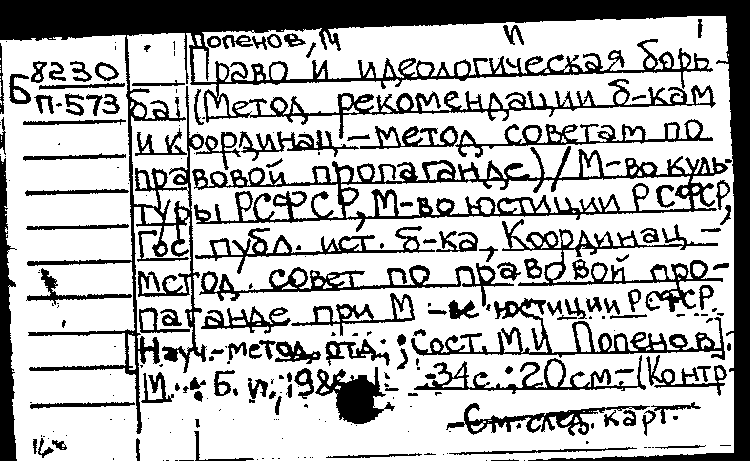 Попенов, М И
8230 Право и идеологическая борь-
Б П-573 ба: (Метод рекомендации б-кам
и координац.-метод советам по
правовой пропаганде) / М-во куль-
туры РСФСР, М-во юстиции РСФСР,
Гос публ. ист. б-ка, Координац.-
метод. совет по правовой про-
паганде при М-ве юстиции РСФСР.
[Науч.-метод. отд.; Сост. М.И Попенов].
М.: Б. и., 34 с.; 20 см.-(Контр
См. след. карт.